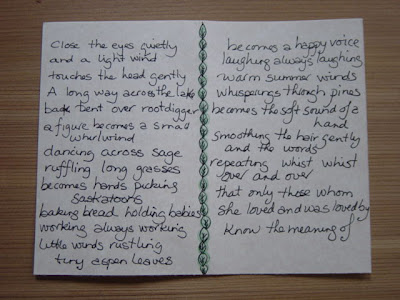 Close the eyes quietly
and a light wind
touches the head gently
A long way across the lake
back bent over rootdigger
a figure becomes a small
whirlwind
dancing across sage
ruffling long grasses
becomes hands picking
Saskatoons
baking bread holding babies
working always working
little winds rustling
tiny aspen leaves
becomes a happy voice
laughing always laughing
warm summer winds
whisperings through pines
becomes the soft sound of a
hand
smoothing the hair gently
and the words
repeating whist whist
over and over
that only those whom
she loved and was loved by
know the meaning of